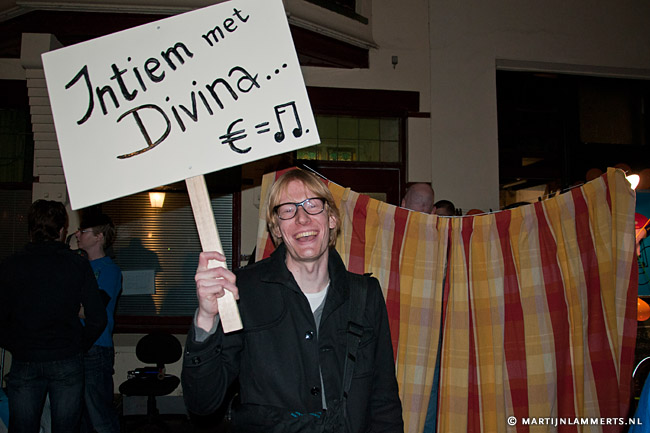 Intiem met
Divina...
€=♫.
© MARTIJNLAMMERTS.NL